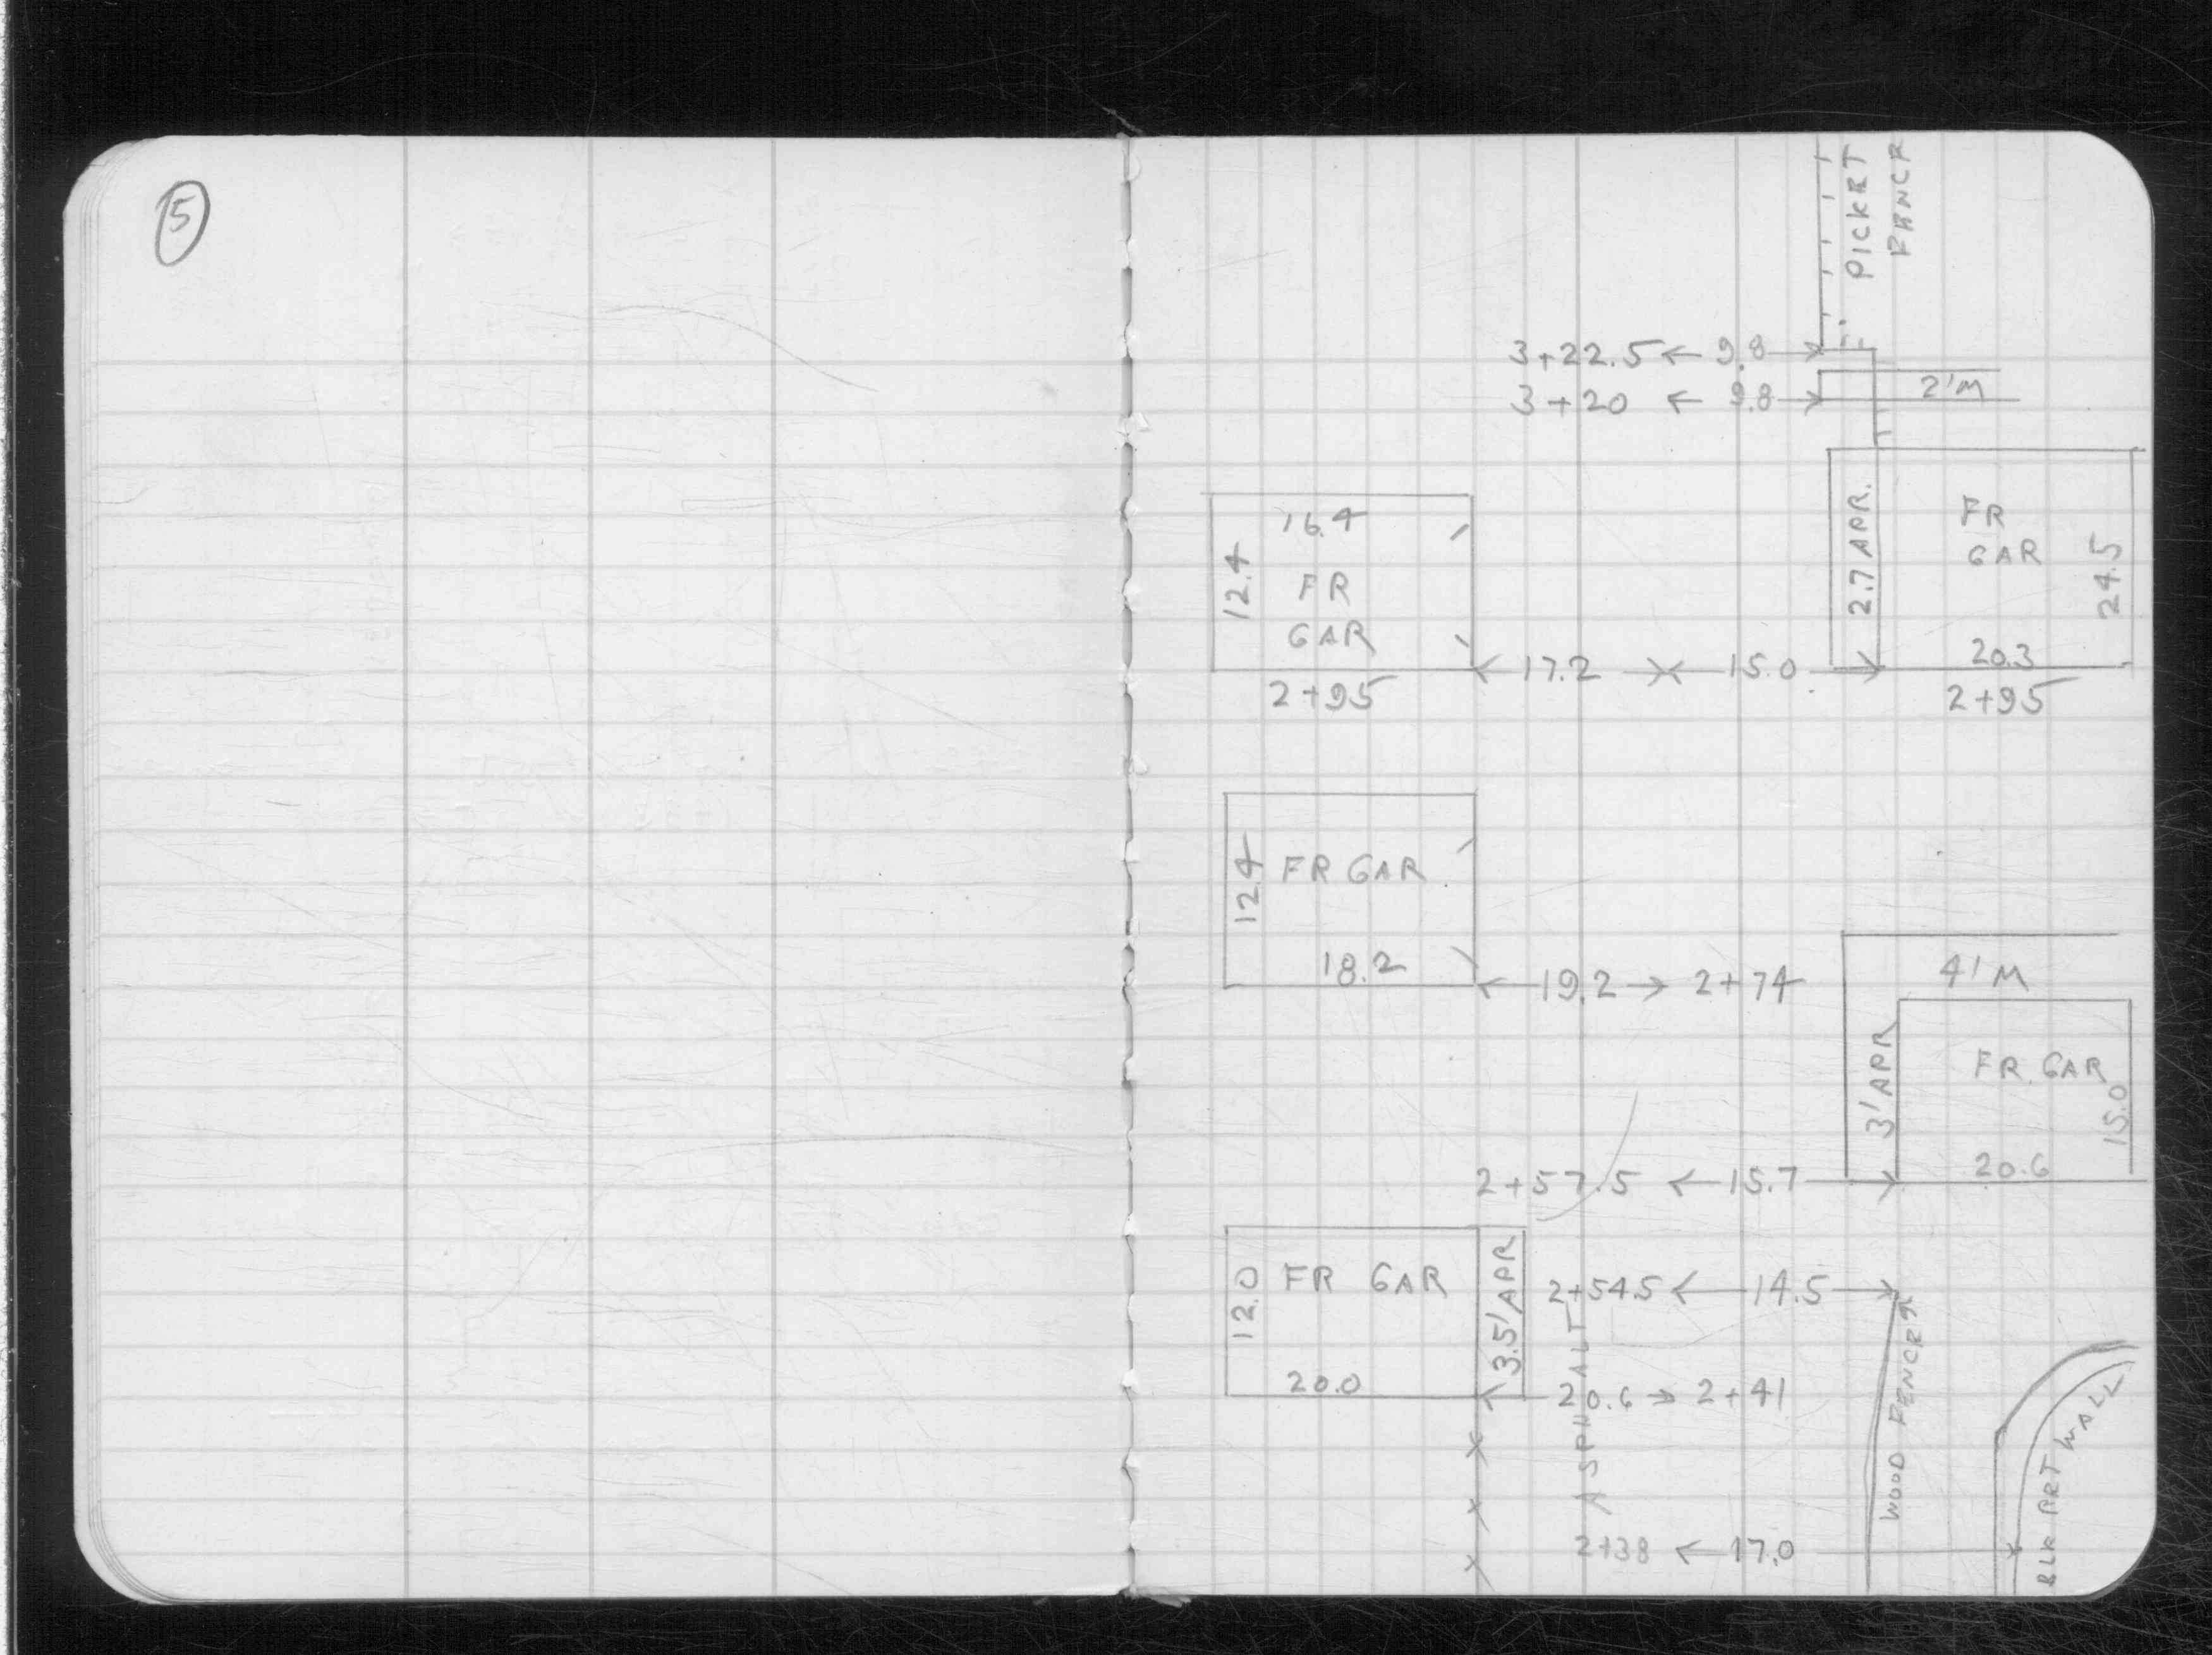 5
PICKET
FENCE
3+22.5 ← 9.8 →
3+20 ← 9.8 →
2'M
16.4
12.4
FR
GAR
2.7 APR.
FR
GAR
24.5
20.3
← 17.2 →← 15.0 →
2+95
2+95
12.4
FR GAR
18.2
← 19.2 → 2+74
4'M
3' APR
FR. GAR
15.0
20.6
2+57.5 ← 15.7 →
12.0
FR GAR
20.0
3.5' APR
2+54.5 ← 14.5 →
← 20.6 → 2+41
ASPHALT
WOOD FENCE
BLK RET WALL
2+38 ← 17.0